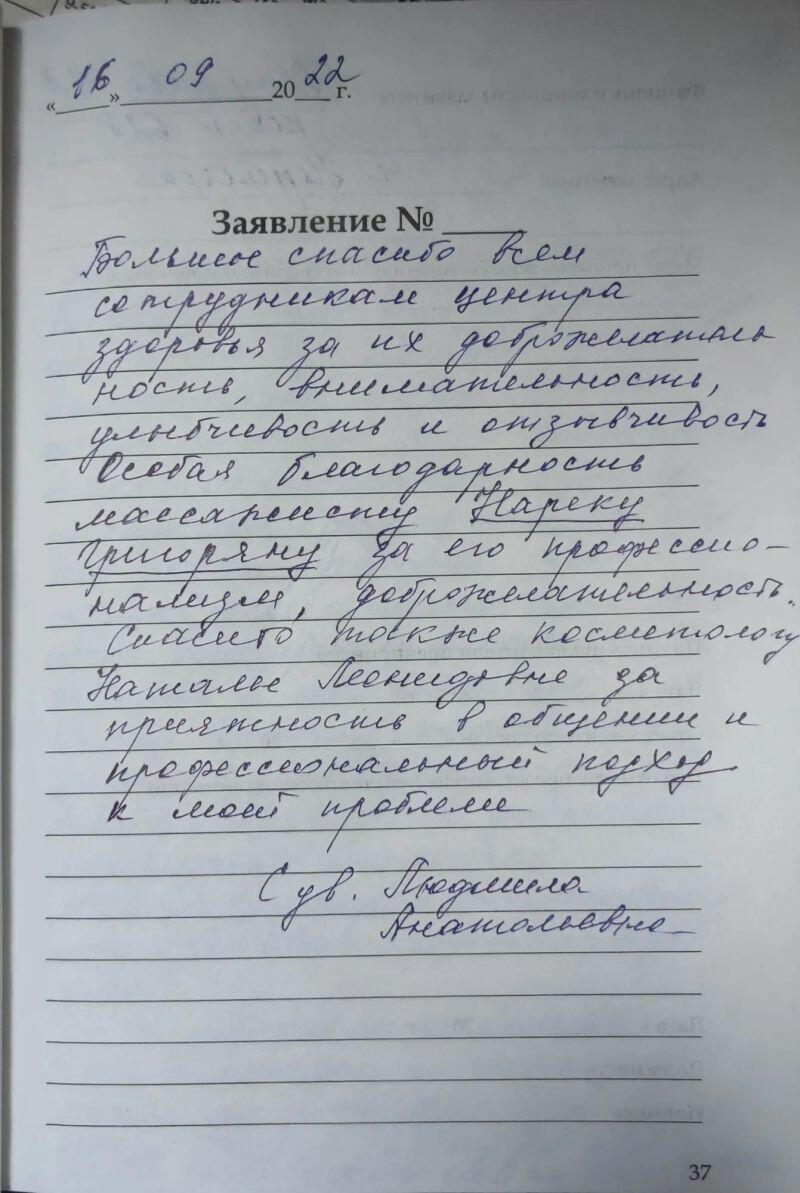 «16» 09 2022 г.
Заявление № ____
Большое спасибо всем
сотрудникам центра
здоровья за их доброжелатель
ность, внимательность,
улыбчивость и отзывчивость
Особая благодарность
массажисту Нареку
Григоряну за его профессио-
нализм, доброжелательность.
Спасибо также косметологу
Наталье Леонидовне за
приятность в общении и
профессиональный подход
к моей проблеме
С ув. Людмила
Анатольевна
37